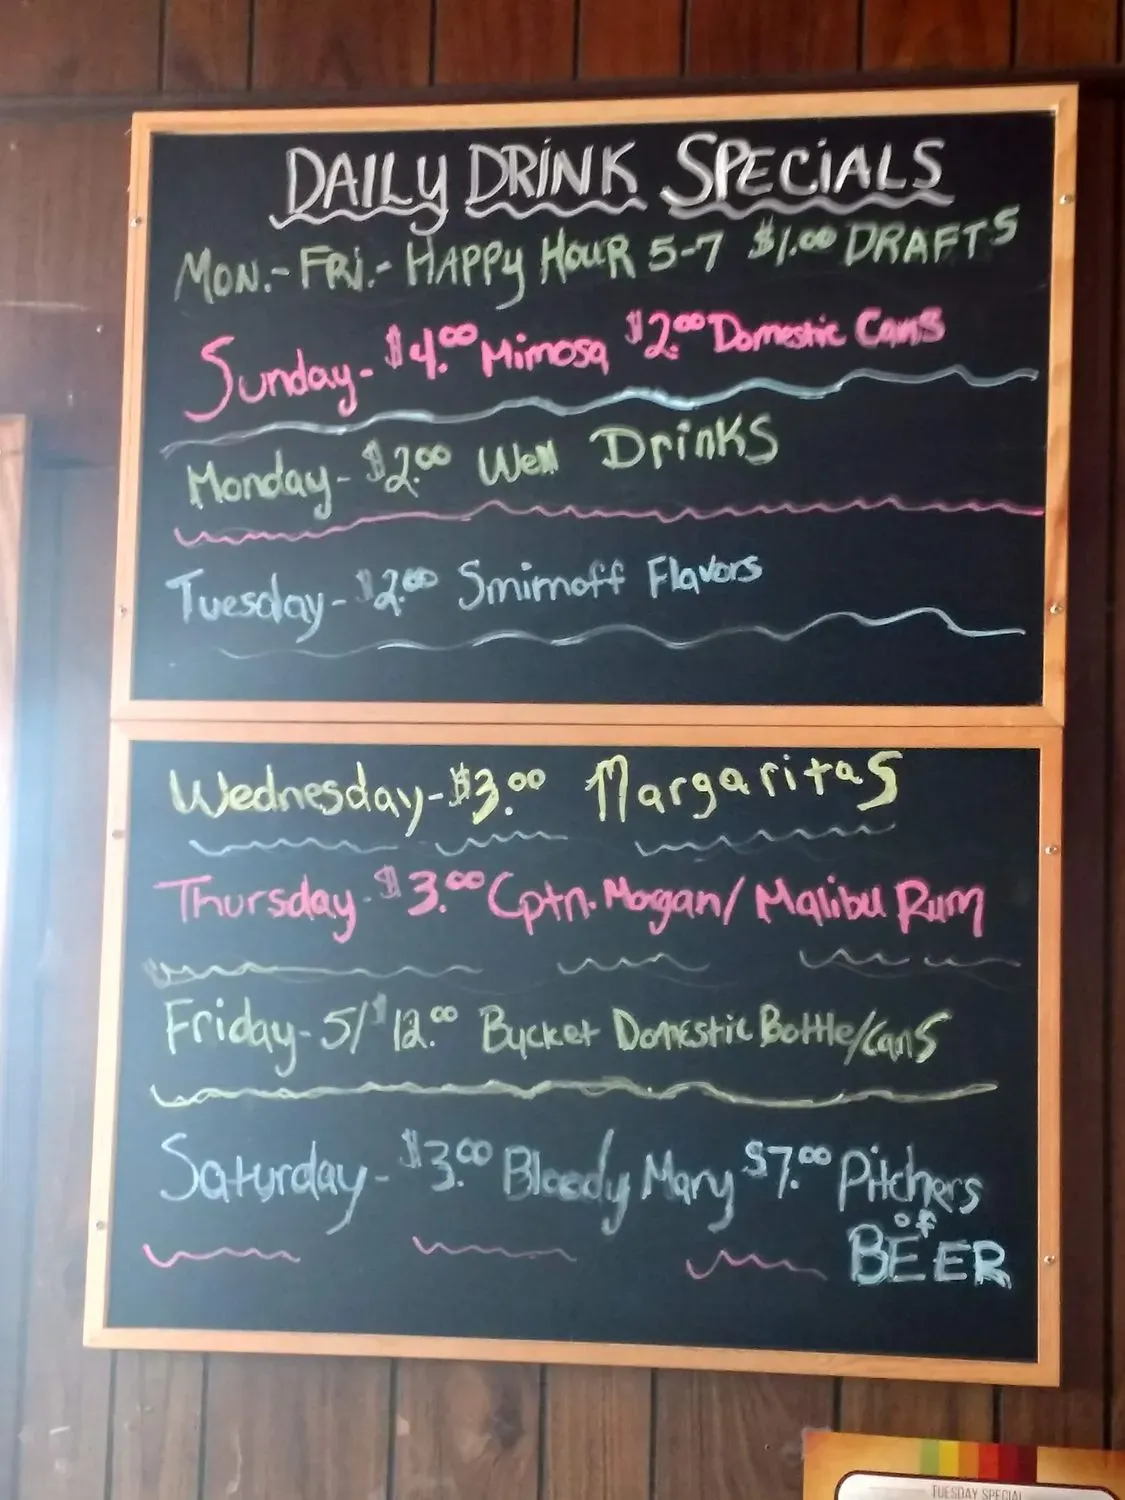 DAILY DRINK SPECIALS
MON.- FRI.- HAPPY HOUR 5-7 $1.00 DRAFTS
Sunday- $4.00 Mimosa $2.00 Domestic Cans
Monday- $2.00 Well Drinks
Tuesday- $2.00 Smirnoff Flavors
Wednesday- $3.00 Margaritas
Thursday- $3.00 Cptn. Morgan/ Malibu Rum
Friday- 5/$12.00 Bucket Domestic Bottle/Cans
Saturday- $3.00 Bloody Mary $7.00 Pitchers
of
BEER
TUESDAY SPECIAL